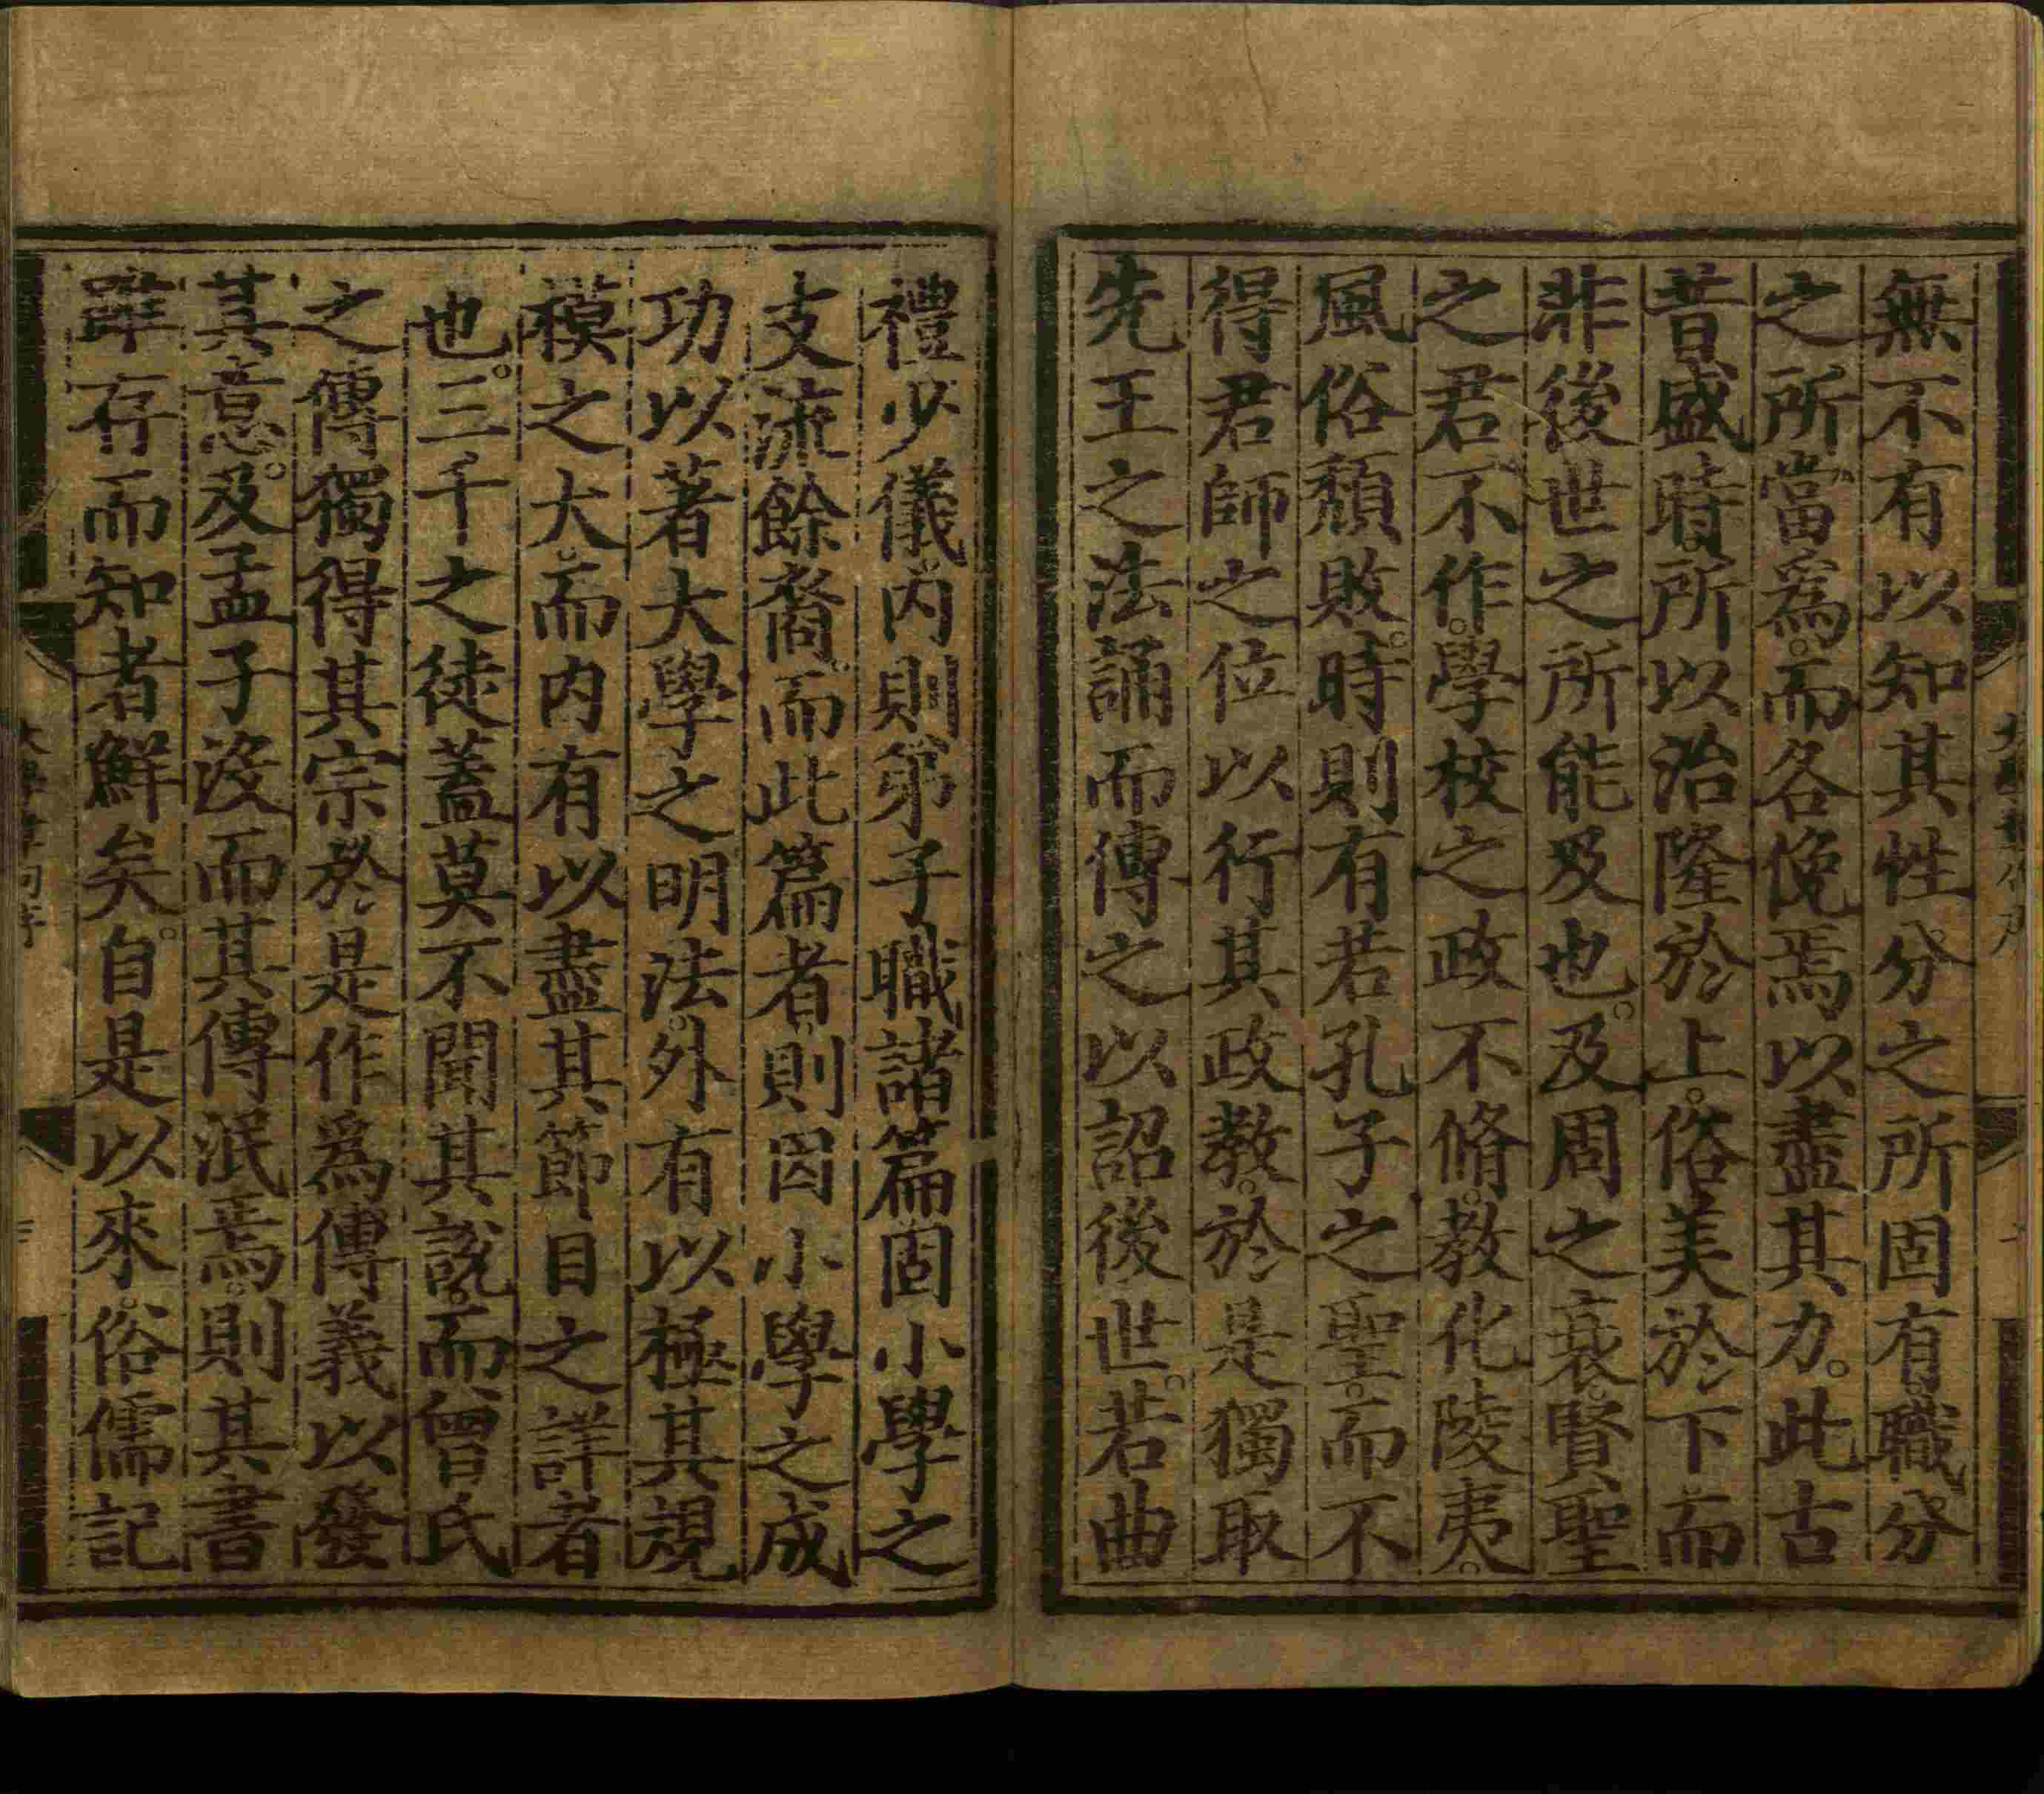 無不有以知其性分之所固有職分
之所當爲而各俛焉以盡其力此古
昔盛時所以治隆於上俗美於下而
非後世之所能及也及周之衰賢聖
之君不作學校之政不脩教化陵夷
風俗頹敗時則有若孔子之聖而不
得君師之位以行其政教於是獨取
先王之法誦而傳之以詔後世若曲
禮少儀內則弟子職諸篇固小學之
支流餘裔而此篇者則因小學之成
功以著大學之明法外有以極其規
模之大而內有以盡其節目之詳者
也三千之徒蓋莫不聞其說而曾氏
之傳獨得其宗於是作爲傳義以發
其意及孟子沒而其傳泯焉則其書
雖存而知者鮮矣自是以來俗儒記